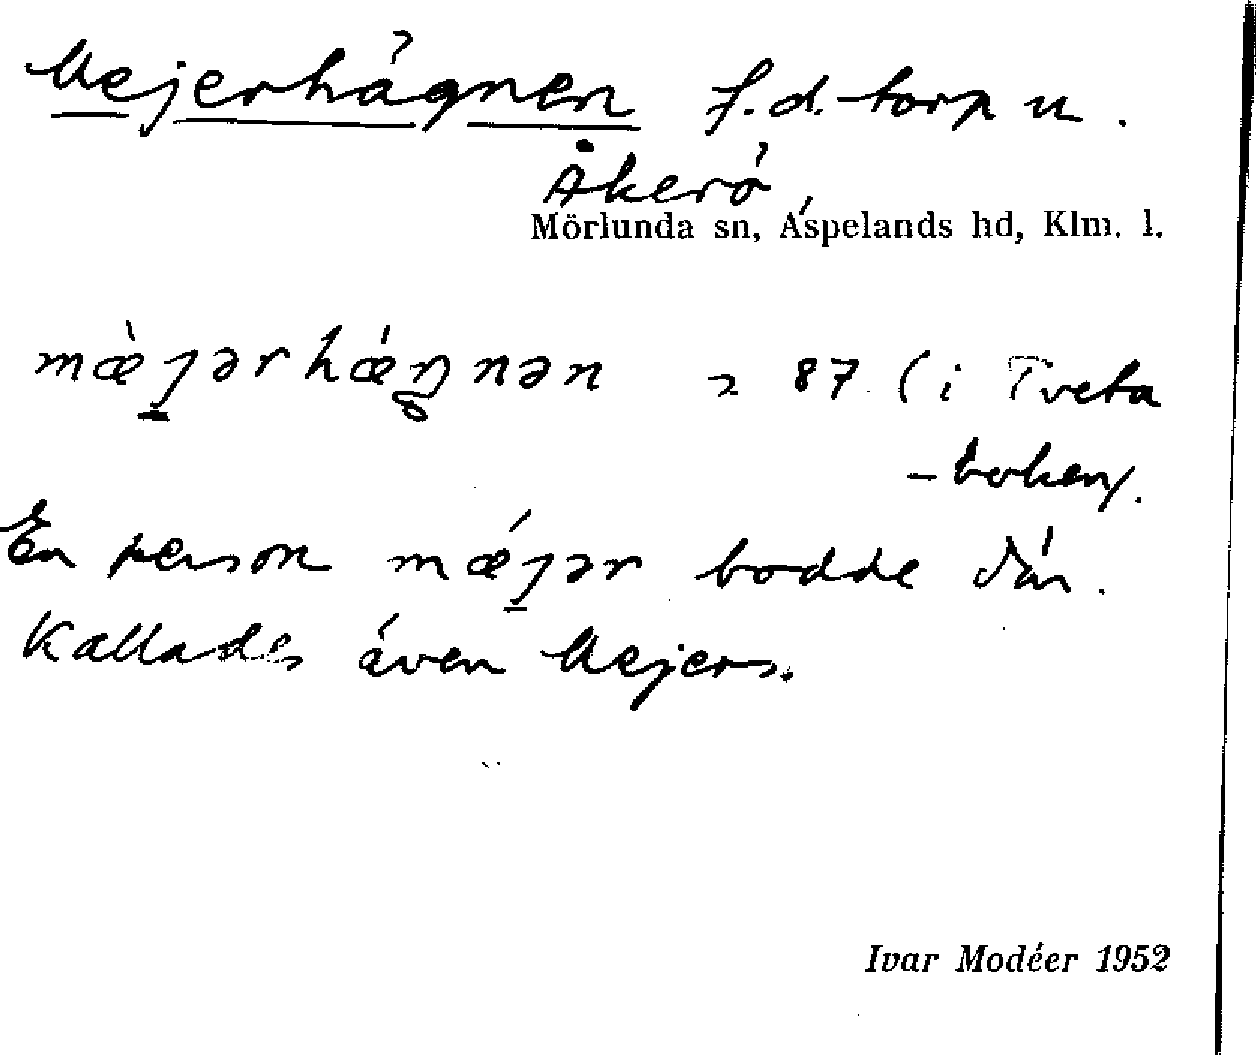 Mejerhägnen f.d. torp u.
Åkerö
Mörlunda sn, Aspelands hd, Klm. l.
mæ̀jərhǽŋnən 87 (i Tveta
-boken).
En person mǽjər bodde där.
Kallades även Mejers.
Ivar Modéer 1952